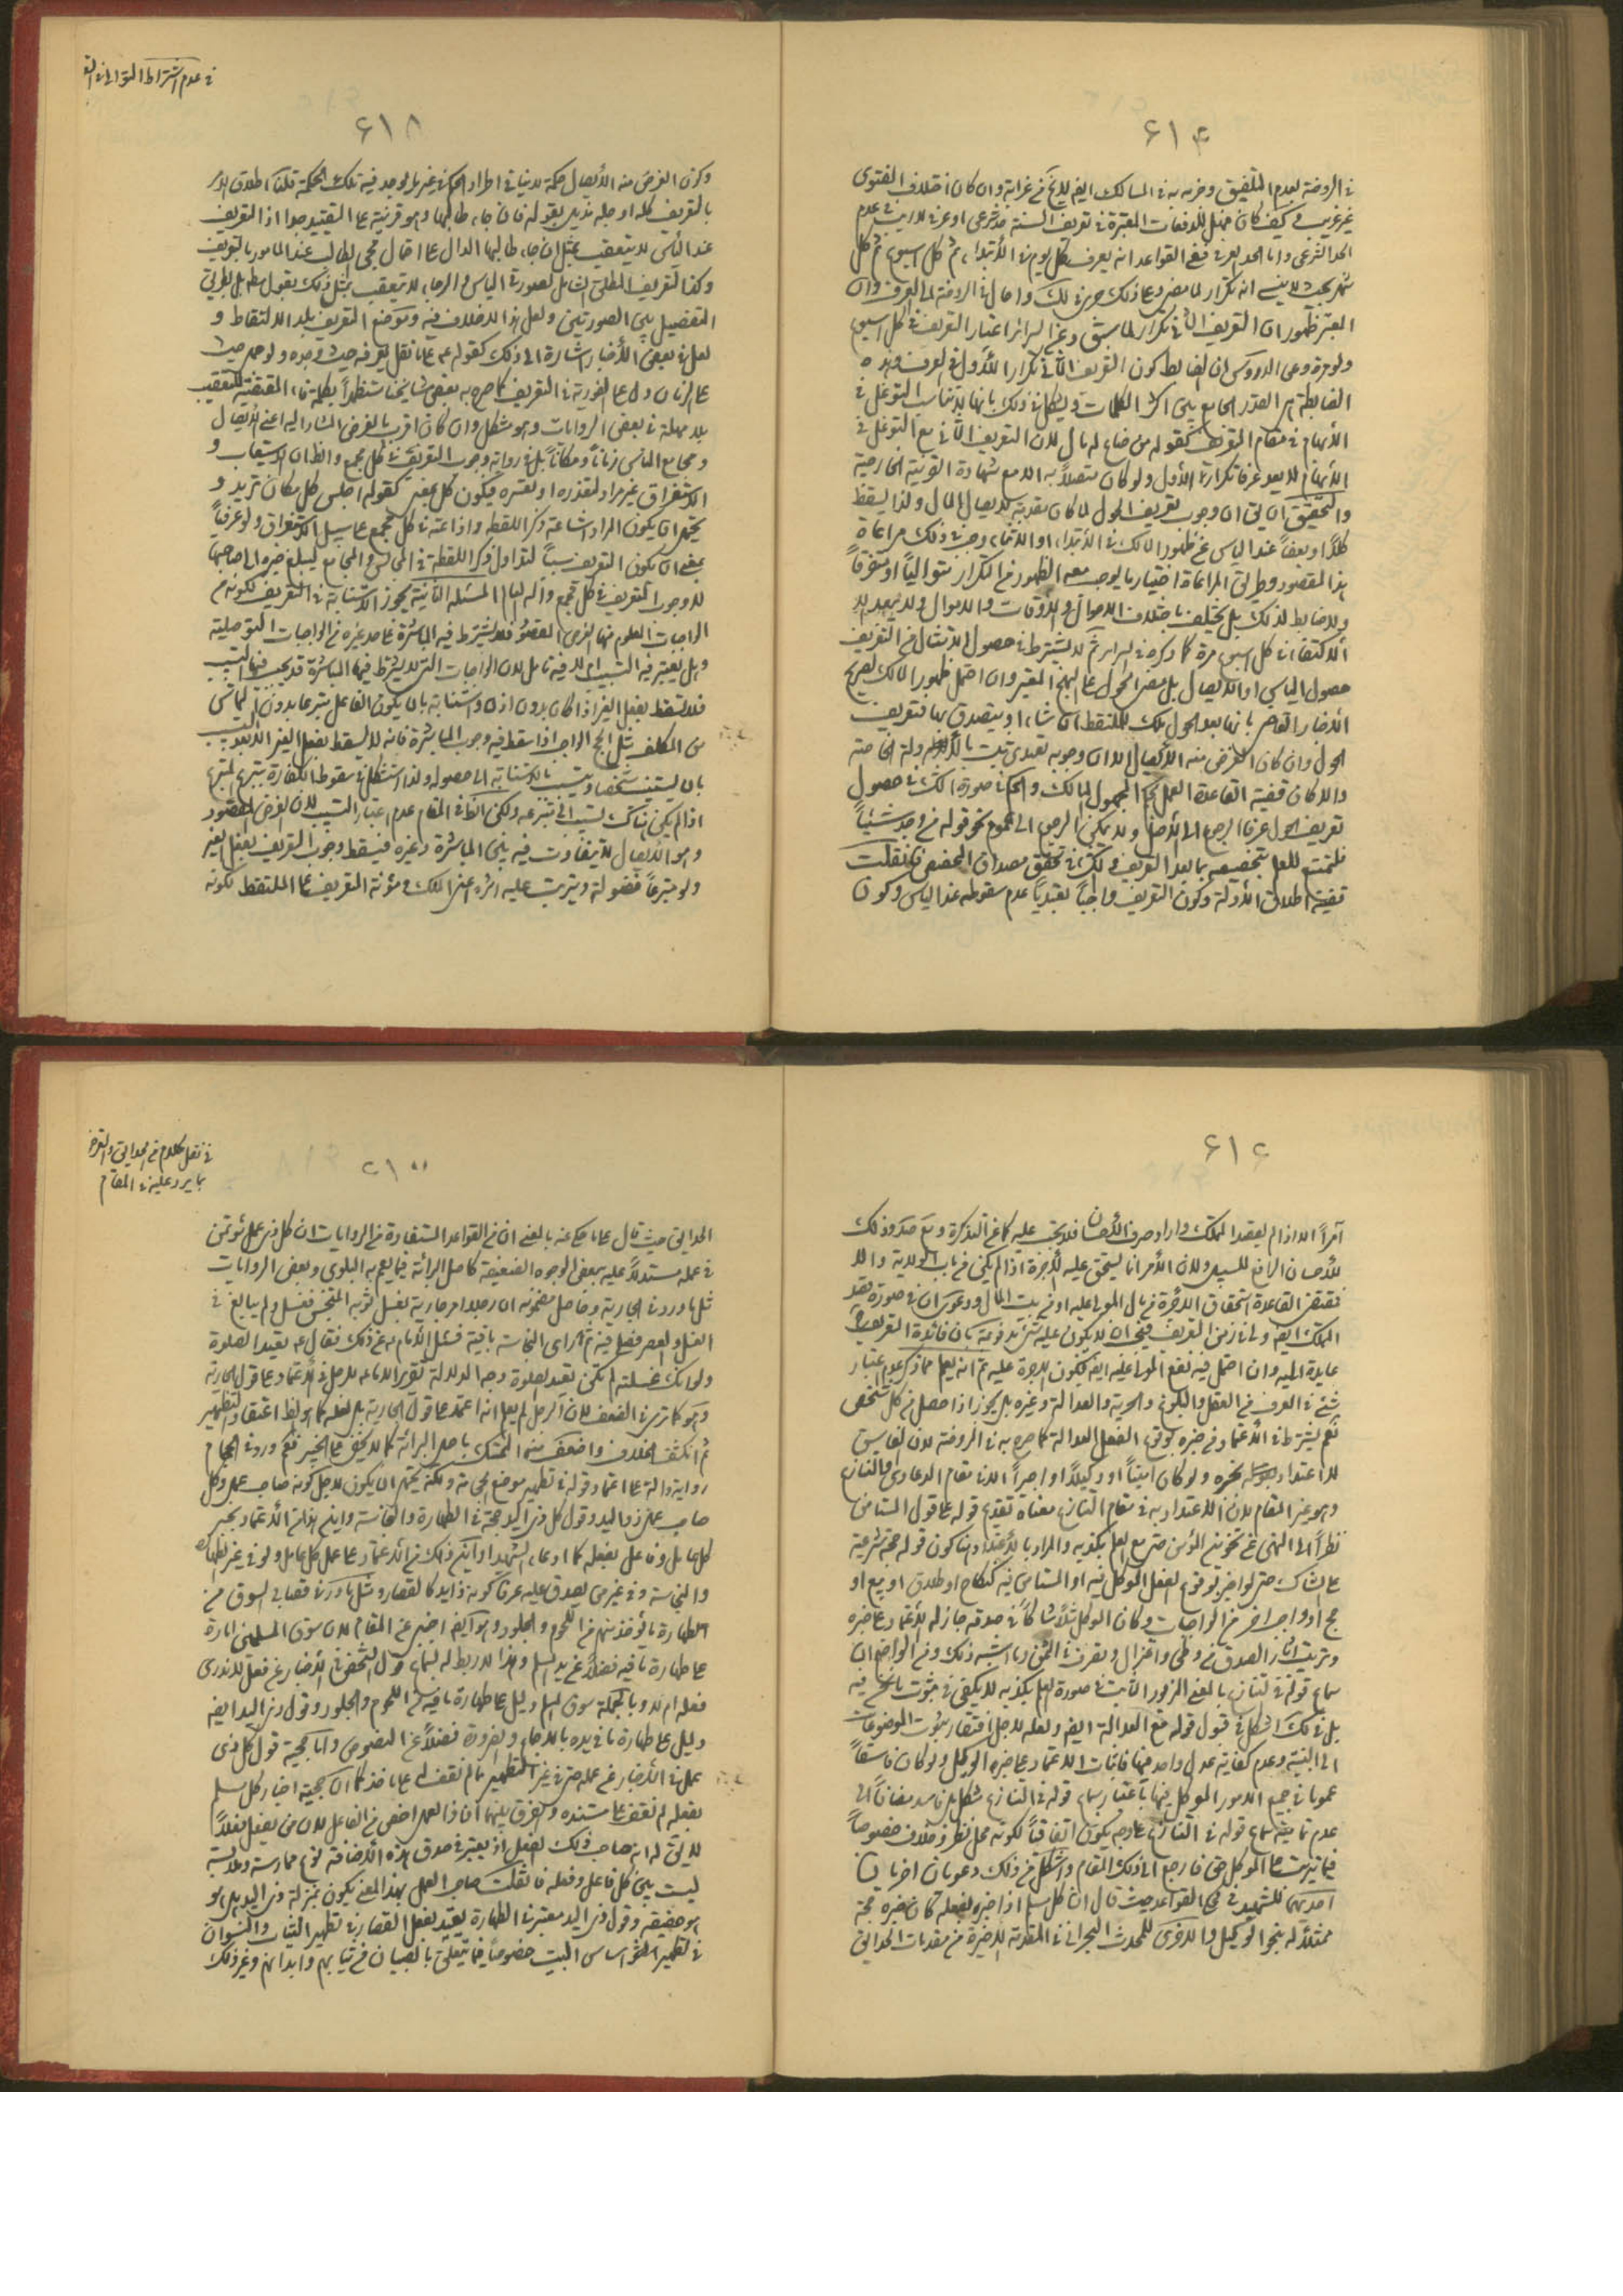 في الروضة لعدم التلفيق وخربه في المسالك ايضا لا يخ عن غرابة وان كان اختلاف الفتوى
غير غريب كيف كان فهل للدفعات المعتبرة في تعريف السنة حد شرعي او عرفي لا ريب في عدم
الحد الشرعي واما الحد العرفي ففي القواعد انه يعرف كل يوم في الابتداء ثم كل اسبوع ثم كل
شهر بحيث لا ينسى انه تكرار لما مضى
المعتبر ظهور ان التعريف الثاني تكرار لما سبق وعن السرائر اعتبار التعريف في كل اسبوع
ولو مرة وعن الدروس ان الضابط كون التعريف الثاني تكرارا للأول في العرف وهذه
الضابطة هي القدر الجامع بين اكثر الكلمات ويشكل ذلك بانها لا تناسب التوغل في
الأبهام في مقام التعريف كقوله من ضاع له مال لان التعريف الثاني مع التوغل في
الأبهام لا يعد عرفا تكرارا للأول ولو كان متصلا به الا مع شهادة القرينة الخارجية
والتحقيق ان يق ان وجوب تعريف الحول لما كان مقدمة لايصال المال ولذا يسقط
كلا او بعضا عند الياس عن ظهور المالك في الابتداء او الاثناء وجب في ذلك مراعاة
هذا المقصود وطريق المراعاة اختيار ما يوجب معه الظهور من التكرار متواليا او متفرقا
ولا ضابط لذلك بل يختلف باختلاف الاحوال والأوقات والاموال ولا يبعد
الاكتفاء في كل اسبوع مرة كما ذكره في السرائر ثم لا يشترط في حصول الامتثال في التعريف
حصول الياس او الايصال بل مضى الحول على النهج المعتبر وان احتمل ظهور المالك لصريح
الأخبار القاصر بانها بعد الحول ملك للملتقط ان شاء او يتصدق بها فتعريف
الحول وان كان الغرض منه الأيصال الا ان وجوبه تعبدي ثبت بالأدلة الخاصة
والا كان قضية القاعدة العمل بحكم المجهول المالك والحكم في صورة الشك في حصول
تعريف الحول عرفا الرجوع الى الأصل ولا يمكن الرجوع الى عموم نحو قوله من وجد شيئا
فليتمتع للعلم بتخصيصه بما بعد التعريف والشك في تحقق مصداق المخصص فان قلت
قضية اطلاق الأدلة وكون التعريف واجبا تعبديا عدم سقوطه عند الياس وكون
في عدم اشتراط التوالي في
٦١٨
وكون الغرض منه الأيصال حكمة لا ينافي اطراد الحكم في غير ما يوجد فيه تلك الحكمة قلنا اطلاق الامر
بالتعريف كله او جله مذيل بقوله فان جاء طالبها وهو قرينة على التقييد جدا اذ التعريف
عند الياس لا يتعقب بمثل ان جاء طالبها الدال على احتمال مجئ الطالب عند المامور بالتعريف
وكذا التعريف المطلق الشامل لصورتي الياس والرجاء لا يتعقب بمثل ذلك بقول مطلق بل بطريق
التفصيل بين الصورتين ولعل هذا لا خلاف فيه وموضع التعريف بلد الالتقاط و
لعل في بعض الأخبار اشارة الى ذلك كقوله عم على ما نقل يعرفه حيث وجده
على الزمان دل على الفورية في التعريف كما صرح به بعض مشايخنا مستظهرا بكلمة فاء المقتضية للتعقيب
بلا مهلة في بعض الروايات وهو مشكل وان كان اقرب بالغرض المشار اليه اعني الأيصال
و مجامع الناس زمانا ومكانا بل في رواية وجوب التعريف في كل مجمع والظاهر ان الاستيعاب و
الاستغراق غير مراد لتعذره او تعسره فيكون كل بمعنى كقوله اجلس كل مكان تريد و
يحتمل ان يكون المراد اشاعة ذكر اللقطة واذاعته في كل مجمع على سبيل الاستغراق ولو عرفيا
بمعنى ان يكون التعريف سببا لتداول ذكر اللقطة في المجالس والمجامع ليبلغ خبره الى صاحبها
لا وجوب التعريف في كل مجمع والله العالم المسئلة الثانية يجوز الاستنابة في التعريف لكونه من
الواجبات المعلوم منها الغرض المقصود فلا يشترط فيه المباشرة على حد غيره من الواجبات التوصلية
وهل يعتبر فيه التسبيب ام لا فيه تامل لان الواجبات التي لا يشترط فيها المباشرة قد يجب فيها التسبب
فلا تسقط بفعل الغير اذا كان بدون اذن واستنابة بان يكون الفاعل متبرعا بدون التماس
من المكلف مثل الحج الواجب اذا سقط فيه وجوب المباشرة فانه لا يسقط بفعل الغير الا بالتسبيب
بان يستنيب شخصا ويتسبب بالاستنابة الى حصوله ولذا استشكل في سقوط الكفارة بتبرع المتبرع
اذا لم يكن هناك تسبب الى تبرعه ولكن الظاهر في المقام عدم اعتبار التسبب لان الغرض المقصود
وهو الأيصال لا يتفاوت فيه بين المباشرة وغيره فيسقط وجوب التعريف بفعل الغير
ولو متبرعا فضولة ويترتب عليه اثره اعني الملك ومؤنة التعريف على الملتقط لكونه
آمرا الا اذا لم يقصد التملك واراد صرف الأحسان فلا يجب عليه كما عن التذكرة
للأحسان الرافع للسبيل ولان الأمر انما يستحق عليه الأجرة اذا لم يكن من باب الولاية والا
فمقتضى القاعدة استحقاق الاجرة من مال المولى عليه او من بيت المال ودعوى ان في صورة قصد
التملك ايضا
عايدة اليه وان احتمل فيه نفع المولى عليه ايضا فيكون الاجرة عليه ثم انه يعلم مما ذكر عدم اعتبار
شئ في المعرف من العقل والبلوغ والحرية والعدالة وغيره بل يجوز اذا حصل من كل شخص
نعم يشترط في الأعتماد في خبره بوقوع الفعل العدالة كما صرح به في الروضة لان الفاسق
لا اعتداد بخبره ولو كان امينا او وكيلا او اجيرا الا في مقام الدعاوى والتنازع
وهو غير المقام لان الاعتداد به في مقام التنازع معناه تقديم قوله على قول المستامن
نظرا الى النهي عن تخوين المؤتمن حتى مع العلم بكذبه والمراد بالأعتداد هنا كون قوله حجة شرعية
على الشاك حتى لو اخبر بوقوع الفعل الموكل فيه او المستامن فيه كنكاح او طلاق او بيع او
حج او واجب اخر من الواجبات وكان الموكل مثلا شاكا في صدقه جاز له الأعتماد على خبره
وترتيب اثار الصدق من وطى واعتزال وتصرف في الثمن وما اشبه ذلك ومن الواضح ان
سماع قوله في التنازع بالمعنى المزبور الثابت في صورة العلم بكذبه لا يكفي في ثبوت ما نحن فيه
بل في ذلك اشكال في قبول قوله مع العدالة ايضا ولعله لاجل افتقار ثبوت الموضوعات
الى البينة وعدم كفاية عدل واحد فيها فاثبات الاعتماد على خبر الوكيل ولو كان فاسقا
عموما في جميع الامور الموكل فيها باعتبار سماع قوله في التنازع مشكل بل فاسد مضافا الى
عدم تمامية سماع قوله في التنازع على وجه يكون اتفاقيا لكونه محل نظر وخلاف خصوصا
فيما يترتب على الموكل حق فارجع الى ذلك المقام واشكل من ذلك دعويان اخريان
احديهما للشهيد في محكي القواعد حيث قال ان كل مسلم اذا اخبر بفعله كان خبره حجة
ممثلا له بنحو الوكيل والاخرى للمحدث البحراني في المقدمة الاخيرة من مقدمات الحدائق
في نقل كلام من الحدائق والتعرض
بما يرد عليه في المقام
الحدائق حيث قال على ما حكي عنه بالمعنى ان من القواعد المستفادة من الروايات ان كل ذي عمل مؤتمن
في عمله مستدلا عليه ببعض الوجوه الضعيفة كاصل البرائة فيما يعم به البلوى وبعض الروايات
مثل ما ورد في الجارية وحاصل مضمونه ان رجلا امر جارية بغسل ثوبه المتنجس فغسل ولم يبالغ في
الغسل والعصر فصلى فيه ثم راى النجاسة باقية فسئل الأمام عم عن ذلك فقال عم يعيد الصلوة
ولو انك غسلته لم تكن تعيد الصلوة وجه الدلالة تقرير الامام عم للرجل في الأعتماد على قول الجارية
وهو كما ترى في الضعف لان الرجل لم يعلم انه اعتمد على قول الجارية
ثم انكشف الخلاف واضعف منه التمسك باصل البرائة كما لا يخفى على الخبير نعم ورد في الحجام
رواية دالة على اعتماد قوله في تطهير موضع الحجامة ولكنه يحتمل ان يكون لاجل كونه صاحب عمل وكل
صاحب عمل ذو اليد وقول كل ذي اليد حجة في الطهارة والنجاسة واين هذا من الأعتماد بخبر
كل عامل وفاعل بفعله كما ادعاه الشهيد او اين ذلك من الأعتماد على عمل كل عامل ولو في غير الطهارة
والنجاسة وفي غير من يصدق عليه عرفا كونه ذا يد كالقصار ومثل ما ورد في قصابي السوق من
طهارة ما يؤخذ منهم من اللحوم والجلود وهو ايضا اخص عن المقام لان سوق المسلمين امارة
على طهارة ما فيه فضلا عن يد المسلم وهذا لا ربط له بسماع قول الشخص في الأخبار عن فعله لا ندري
فعله ام لا وبالجملة سوق المسلم دليل على طهارة ما فيه من اللحوم والجلود وقول ذي اليد ايضا
دليل على طهارة ما في يده بالاجماع والضرورة فضلا عن النصوص واما حجية قول كل ذي
عمل في الأخبار عن عمله حتى في غير التطهير فلم نقف له على ماخذ كما ان حجية اخبار كل مسلم
بفعله لم نقف على مستنده والفرق بينهما ان ذا العمل اخص من الفاعل لان من يفعل فعلا
لا يق له انه صاحب ذلك الفعل اذ يعتبر في صدق هذه الأضافة نوع ممارسة وملابسة
ليست بين كل فاعل وفعله فان قلت صاحب العمل بهذا المعنى يكون بمنزلة ذي اليد بل هو
هو حقيقة وقول ذي اليد معتبر في الطهارة يعتبر بفعل القصار في تطهير الثياب والنسوان
في تطهير اساس البيت خصوصا فيما يتعلق بالصبيان من ثيابهم وابدانهم وغير ذلك